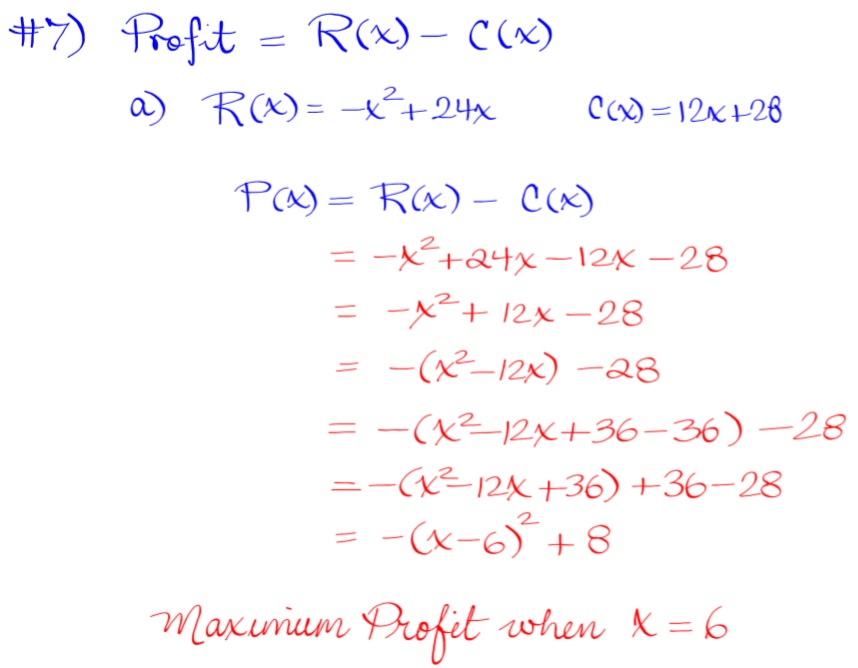 #7) Profit = R(x) - C(x)
a) R(x) = -x²+24x C(x) = 12x+28
P(x) = R(x) - C(x)
= -x²+24x-12x-28
= -x²+12x-28
= -(x²-12x)-28
= -(x²-12x+36-36)-28
= -(x²-12x+36)+36-28
= -(x-6)²+8
Maximum Profit when x = 6